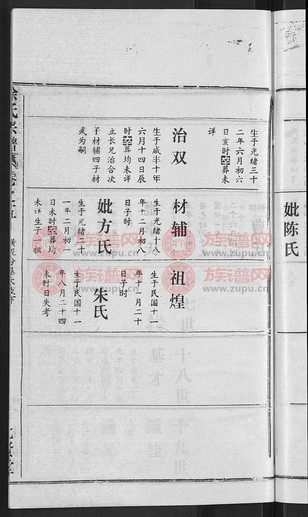 妣陈氏
生于光绪三十
二年六月初六
日亥时殁葬未
详
治双
生于咸丰十年
六月十四日辰
时殁葬均未详
立长兄治合次
子材辅四子材
武为嗣
材辅
生于光绪十八
年十二月初八
日子时
妣方氏
生于光绪二十
一年二月初一
日未时殁葬均
未详生子一祖
祖煌
生于民国十一
年十一月二十
日子时
朱氏
生于民国十一
年八月二十四
未时日失考
族谱网
www.zupu.cn
族谱网
www.zupu.cn
族谱网
www.zupu.cn